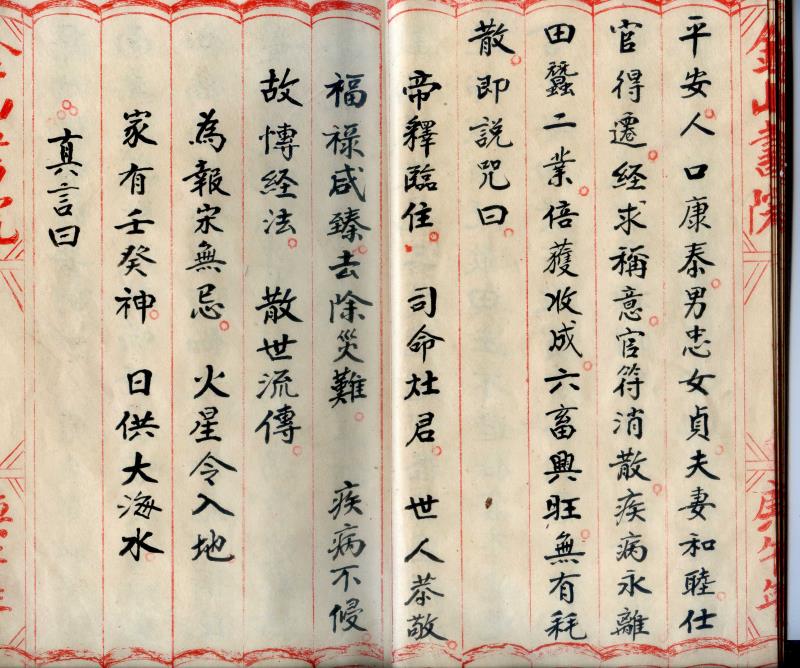 平安。人口康泰。男忠女貞。夫妻和睦。仕
官得遷。経求稱意。官符消散。疾病永離。
田蠶二業。倍獲收成。六畜興旺。無有耗
散。即說咒曰。
帝釋臨住。司命灶君。世人恭敬。
福禄咸臻。去除災難。疾病不侵。
故愽経法。散世流傳。
為報宋無忌。火星令入地。
家有壬癸神。日供大海水。
真言曰